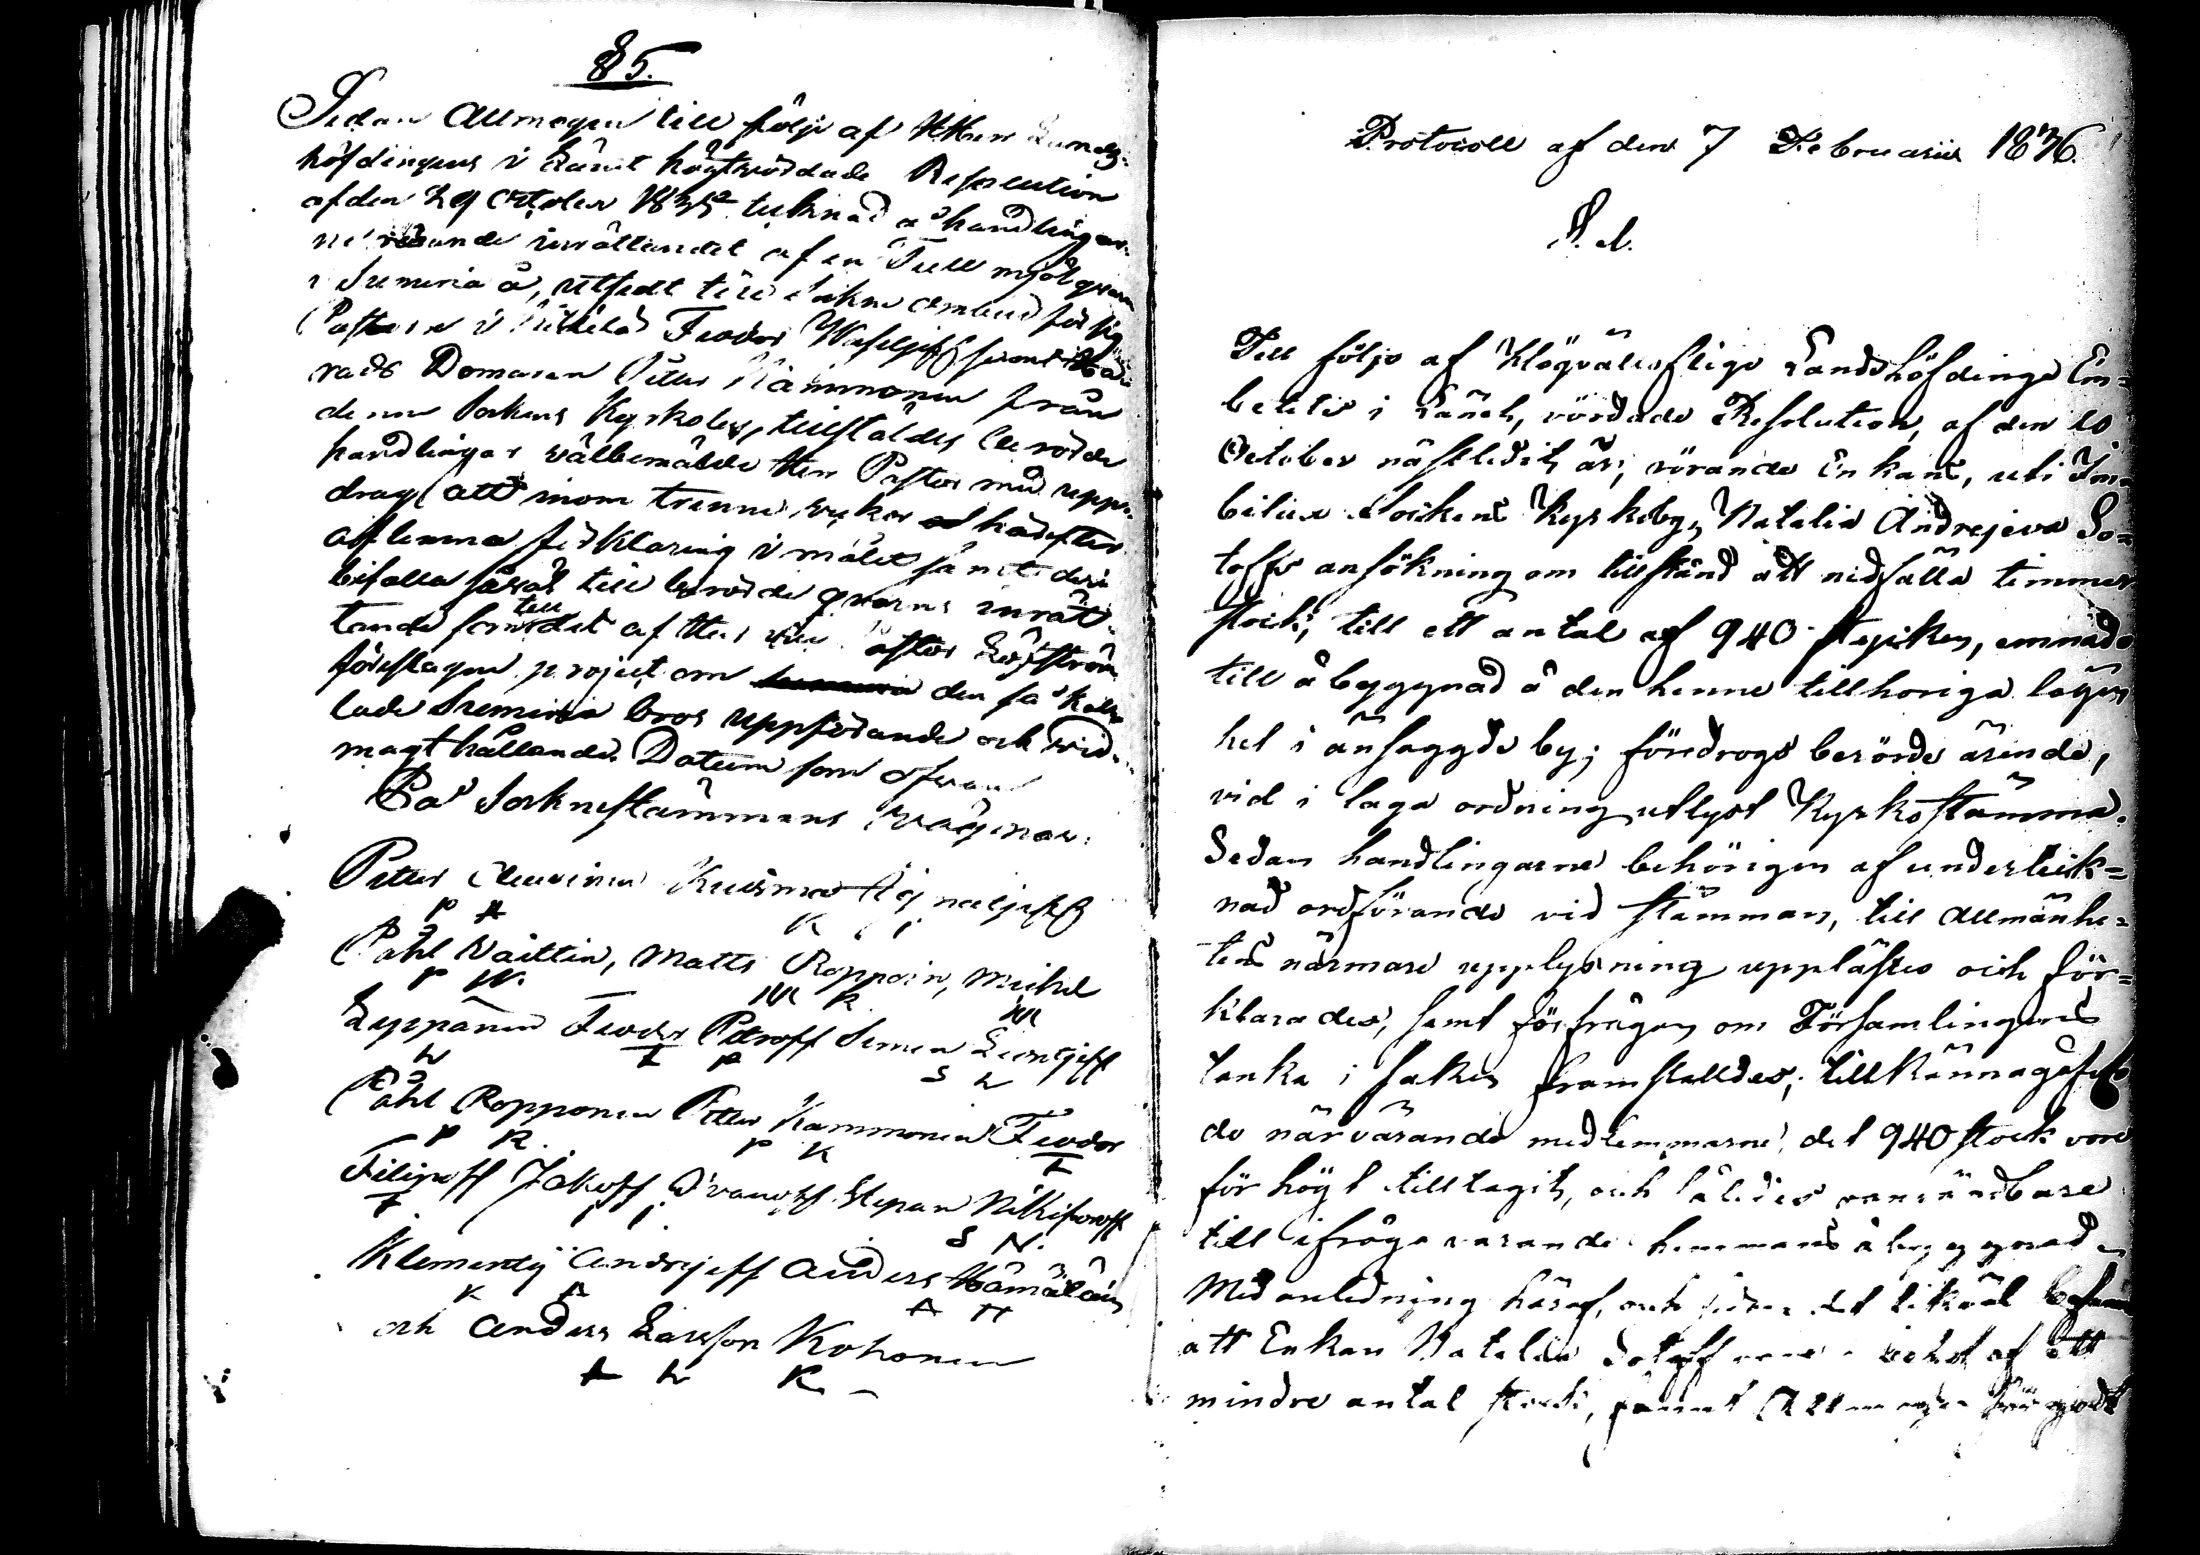 § 5.
Sedan Allmogen till följe af Herr Lands-
höfdingens i Länet högtvördade Resolution
af den 29 October 1835 tecknad å handlingar-
ne rörande inrättandet af en Tull mjölqvarn
i Sumeria å, utsedt till Sockne ombud för sig
Pastorn i Feodor Wasiljeff samt Härads
rads Domaren Petter Kämmonen från
denna Sockens Kyrkoby, tillstäldes berörde
handlingar välbemälde Herr Pastor med upp-
drag att inom trenne veckor härefter
aflemna förklaring i målet samt deri
bifalla såväl till berörde qvarns inrät-
tande som till det af Herr Pastor Löfström
föreslagne project om den så kal-
lade Suminia bros uppförande och vid-
magt hållande. Datum som ofvan
På Socknestämmans vägnar:
Petter Kusma Ignatjeff
P A K I
Påhl Vaittin, Matts Roppoin, Michel
P W. M R M
Leppänen Feodor Petroff Simon Leontjeff
L F P S L
Påhl Ropponen Petter Kammonen Feodor
P R. P K F
Filipoff Jakoff Ivanoff Stepan Nikiforoff
F I I S N.
Klementij Andrejeff Anders Hämäläin
K A A H
och Anders Larsson Kohonen
A L K.
Protocoll af den 7 Februarii 1836.
S. d.
Till följe af Högvällofliga Landshöfdinge Em-
betets i Länet, vördade Resolution, af den 20
October nästledit år, rörande Enkans, uti Im-
bilax Sockens Kyrkoby, Natalia Andrejeva So-
toffs ansökning om tillstånd att nedfälla timmer
stock, till ett antal af 940 stycken, ämnade
till åbyggnad å den henne tillhöriga lägen-
het i ansagde by; föredrogs berörde ärende,
vid i laga ordning utlyst Kyrkostämma.
Sedan handlingarne behörigen af underteck-
nad ordförande vid stämman, till Allmänhe-
tens närmare upplysning upplästes och för-
klarades, samt förfrågan om Församlingens
tanka i saken framställdes; tillkännagåfvo
de närvarande medlemmarne, det 940 stock vore
för högt tilltagit, och således oanvändbare
till ifråga varande hemmans åbyggnad.
Med anledning häraf, och sedan det likväl befans
att Enkan Natalia Sotoff vore i behof af ett
mindre antal stock, samt Allmogen för godt